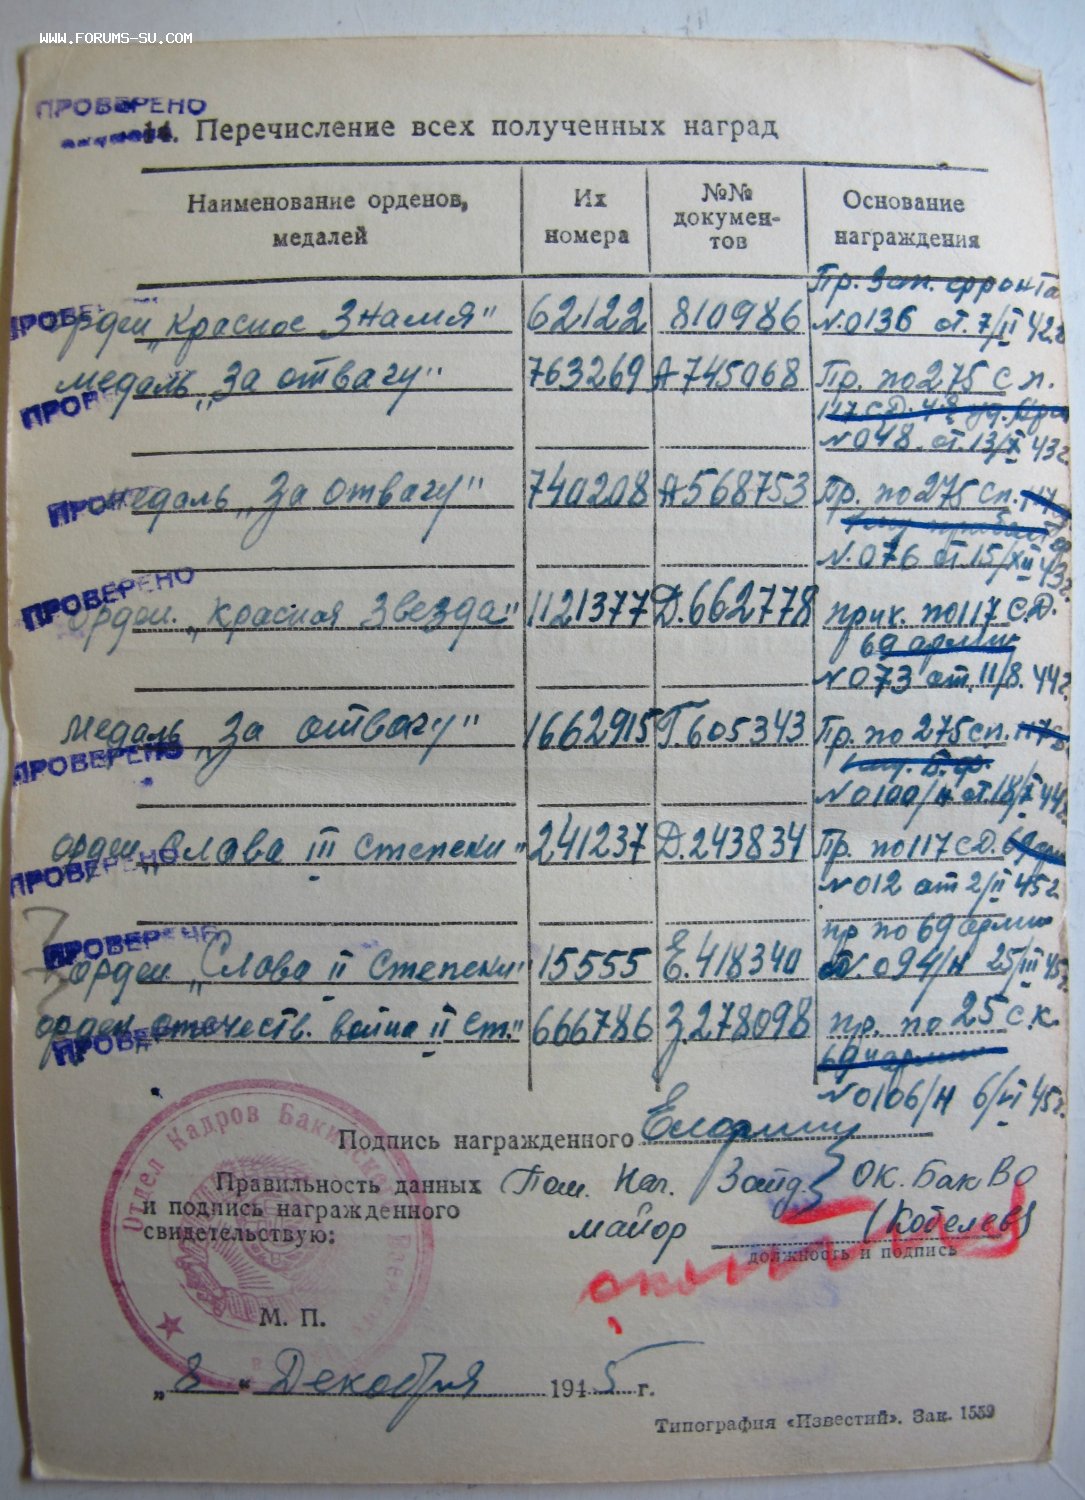 WWW.FORUMS-SU.COM
ПРОВЕРЕНО
14. Перечисление всех полученных наград
Наименование орденов, медалей
Их номера
№№ документов
Основание награждения
Пр. Зап. фронта
ПРОВЕ
орден „Красное Знамя" 62122 810986 №0136 от 7/II 42г
медаль „За отвагу" 763269 А745068 Пр. по 275 с п.
ПРОВЕ
117 СД. уд.
№048 от 13/X 43г.
ПРО
медаль „За отвагу" 740208 А568753 Пр. по 275 сп.
№076 от 15/XII 43г.
ПРОВЕРЕНО
орден „Красная Звезда" 1121377 Д.662778 прик. по 117 С.Д.
69 армии
№073 от 11/8. 44г.
медаль „За отвагу" 1662915 Г.605343 Пр. по 275 сп.
ПРОВЕРЕНО
№0100/н от 18/X 44г.
орден „Слава III степени" 241237 Д.243834 Пр. по 117 СД.
ПРОВЕРЕНО
№012 от 2/II 45г.
пр по 69 армии
ПРОВЕРЕНО
орден „Слава II степени" 15555 Е.418340 №094/н 25/III 45г
орден отечеств. война II ст." 666786 З.278098 пр. по 25 с.к.
ПРОВЕРЕНО
69 армии
№0106/н 6/VI 45г.
Подпись награжденного
Правильность данных
и подпись награжденного
свидетельствую:
Пом. Нач. ОК. БакВО
майор (Кобелев)
должность и подпись
Отдел Кадров
М. П.
„8" Декабря 1945 г.
Типография «Известий». Зак. 1559